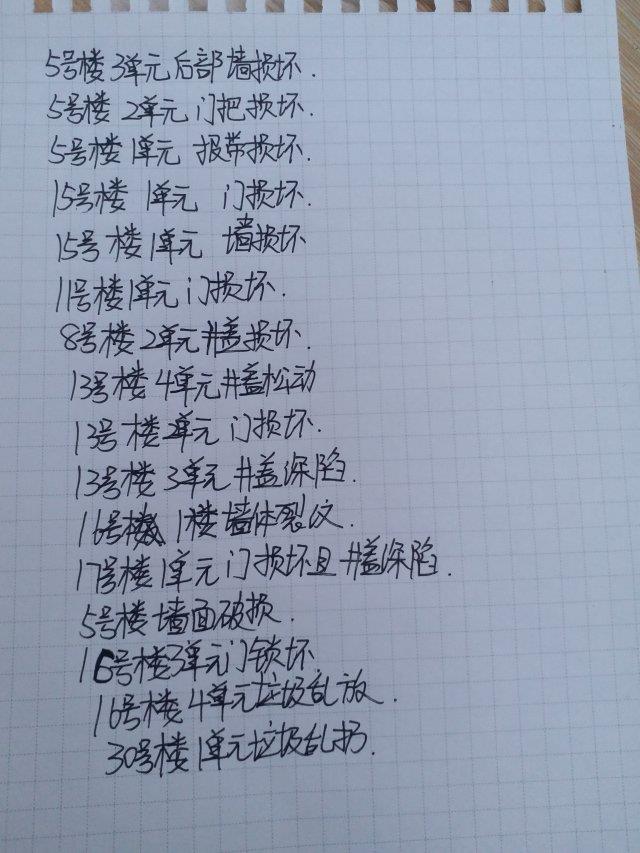 5号楼 3单元后部墙损坏.
5号楼 2单元 门把损坏.
5号楼 1单元 报带损坏.
15号楼 1单元 门损坏.
15号楼1单元 墙损坏
11号楼1单元门损坏.
8号楼2单元井盖损坏.
13号楼4单元井盖松动
13号楼2单元 门损坏.
13号楼3单元井盖深陷.
16号楼 1楼墙体裂纹.
17号楼1单元门损坏且井盖深陷.
5号楼墙面破损.
16号楼3单元门锁坏
16号楼4单元垃圾乱放.
30号楼1单元垃圾乱扔.